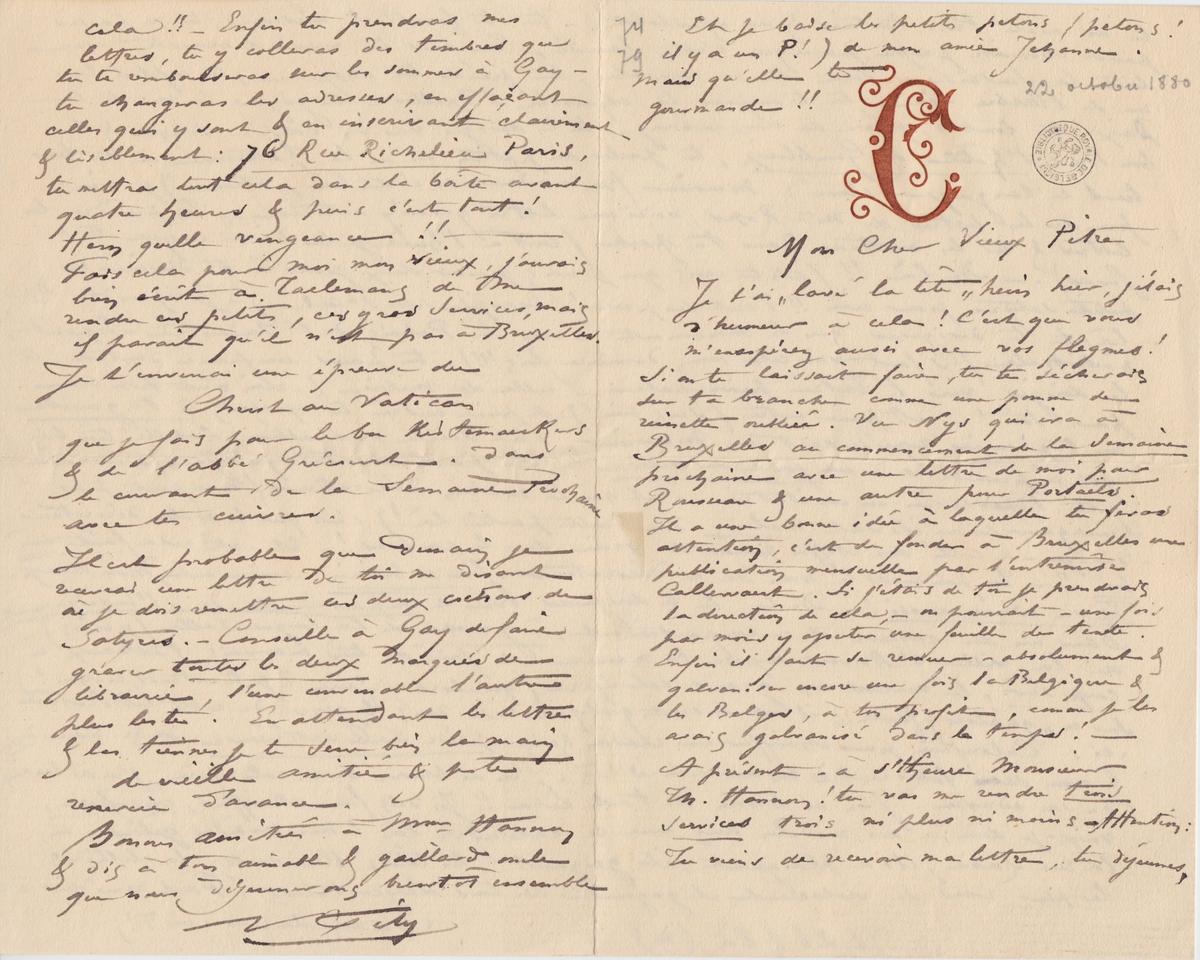 74
79
22 octobre 1880
Et je baise les petits petons (petons!
il y a un P!) de mon amie Jehanne.
Mais qu'elle te
gourmande !!
C
BIBLIOTHEQUE ROYALE DE BELGIQUE
Mon Cher Vieux Pitre
Je t'ai „lavé la tête„ hein hier, j'étais
d'humeur à cela! C'est que vous
m'exaspérez aussi avec vos flegmes!
Si on te laissait faire, tu te sécherais
sur ta branche comme une pomme de
reinette oubliée. Vu Nys qui ira à
Bruxelles au commencement de la semaine
prochaine avec une lettre de moi pour
Rousseau & une autre pour Portaëls.
Il a une bonne idée à laquelle tu feras
attention, c'est de fonder à Bruxelles une
publication mensuelle par l'entremise
Callewaert. Si j'étais de toi je prendrais
la direction de cela, – on pourrait – une fois
par mois y ajouter une feuille de texte.
Enfin il faut se remuer – absolument &
galvaniser encore une fois la Belgique &
les Belges, à ton profit, comme je les
avais galvanisé dans le temps! —
A présent – à st'Heure Monsieur
Th. Hannon! tu vas me rendre trois
services trois ni plus ni moins. Attention:
Tu viens de recevoir ma lettre, tu déjeunes,
cela !! – Enfin tu prendras mes
lettres, tu y colleras des timbres que
tu te rembourseras sur les sommes à Gay –
tu changeras les adresses, en effaçant
celles qui y sont & en inscrivant clairement
& lisiblement: 76 Rue Richelieu Paris,
tu mettras tout cela dans la boîte avant
quatre heures & puis c'est tout!
Hein quelle vengeance !!
Fais cela pour moi mon vieux, j'aurais
bien écrit à Taelemans de me
rendre ces petits, ces gros services, mais
il parait qu'il n'est pas à Bruxelles.
Je t'enverrai une épreuve du
Christ au Vatican
que je fais pour le bon Kistemaeckers
& de l'abbé Grécourt. dans
le courant de la semaine Prochaine
avec tes cuivres.
Il est probable que Demain je
recevrai une lettre de toi me disant
où je dois remettre ces deux cochons de
Satyres. – Conseille à Gay de faire
graver toutes les deux marques de
librairie, l'une convenable l'autre
plus leste. En attendant les lettres
& les tiennes je te serre bien la main
de vieille amitié & je te
remercie d'avance.
Bonnes amitiés à Mme Hannon
& dis à ton aimable & gaillard oncle
que nous déjeunerons bientôt ensemble
Fély